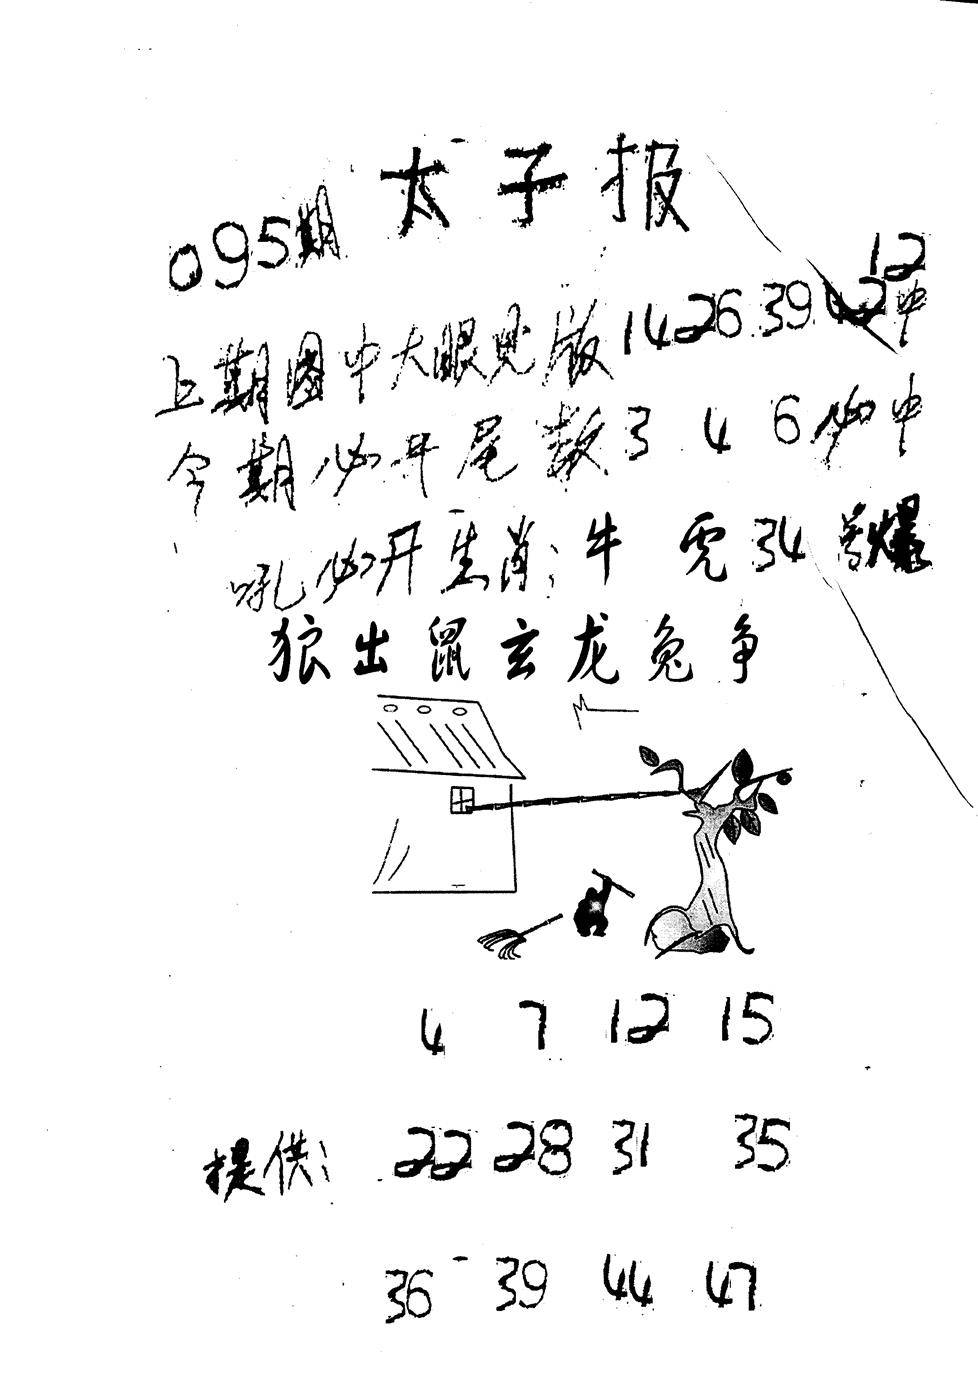 太子报
095期
12
上期图中大眼见版14 26 39 42中
今期必开尾数3 4 6必中
吼必开生肖:牛 虎34 爆
狼出鼠玄龙兔争
4 7 12 15
提供: 22 28 31 35
36 39 44 47